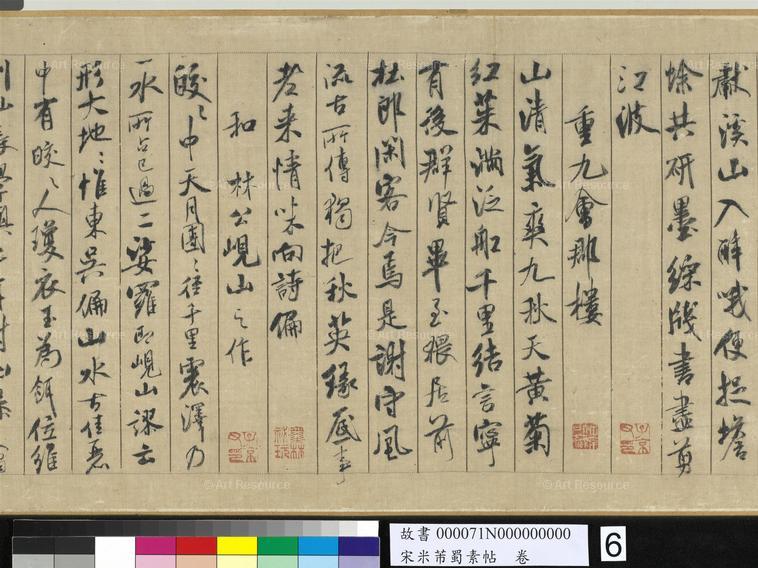 獻溪山入醉哦便捉蟾
蜍共研墨綵牋書盡剪
江波
重九會郡樓
山清氣爽九秋天黄菊
紅茱滿泛船千里結言寧
有後群賢畢至猥居前
杜郎閑客今焉是謝守風
流古所傳獨把秋英緣底事
老来情味向詩偏
和林公峴山之作
皎〻中天月團〻徑千里震澤乃
一水所占已過二娑羅即峴山謬云
形大地〻惟東吳偏山水古佳麗
中有皎〻人瓊衣玉為餌位維
© Art Resource
© Art Resource
© Art Resource
© Art Resource
© Art Resource
故書 000071N000000000
宋米芾蜀素帖 卷
6